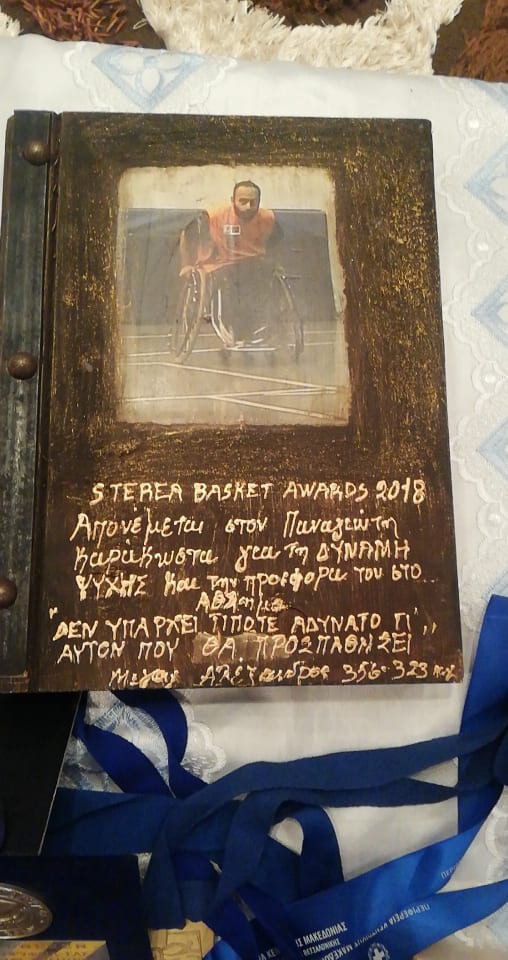 STEREA BASKET AWARDS 2018
Απονέμεται στον Παναγιώτη
Καράκωστα για τη ΔΥΝΑΜΗ
ΨΥΧΗΣ και την προσφορά του στο..
Αθλημα
"ΔΕΝ ΥΠΑΡΧΕΙ ΤΙΠΟΤΕ ΑΔΥΝΑΤΟ ΓΙ'
ΑΥΤΟΝ ΠΟΥ ΘΑ ΠΡΟΣΠΑΘΗΣΕΙ"
Μεγας Αλέξανδρος 356-323 πχ
ΙΣ ΜΑΚΕΔΟΝΙΑΣ
ΘΕΣΣΑΛΟΝΙΚΗΣ
ΠΕΡΙΦΕΡΕΙΑ ΚΕΝΤΡΙΚΗΣ ΜΑΚΕΔΟΝΙΑΣ